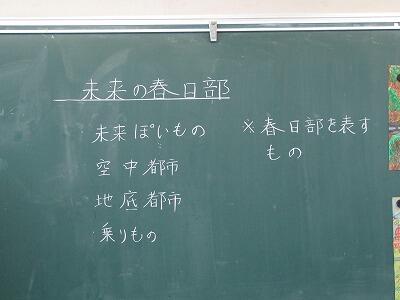 未来の春日部
未来ぽいもの
空中都市
地底都市
乗りもの
※春日部を表す
もの